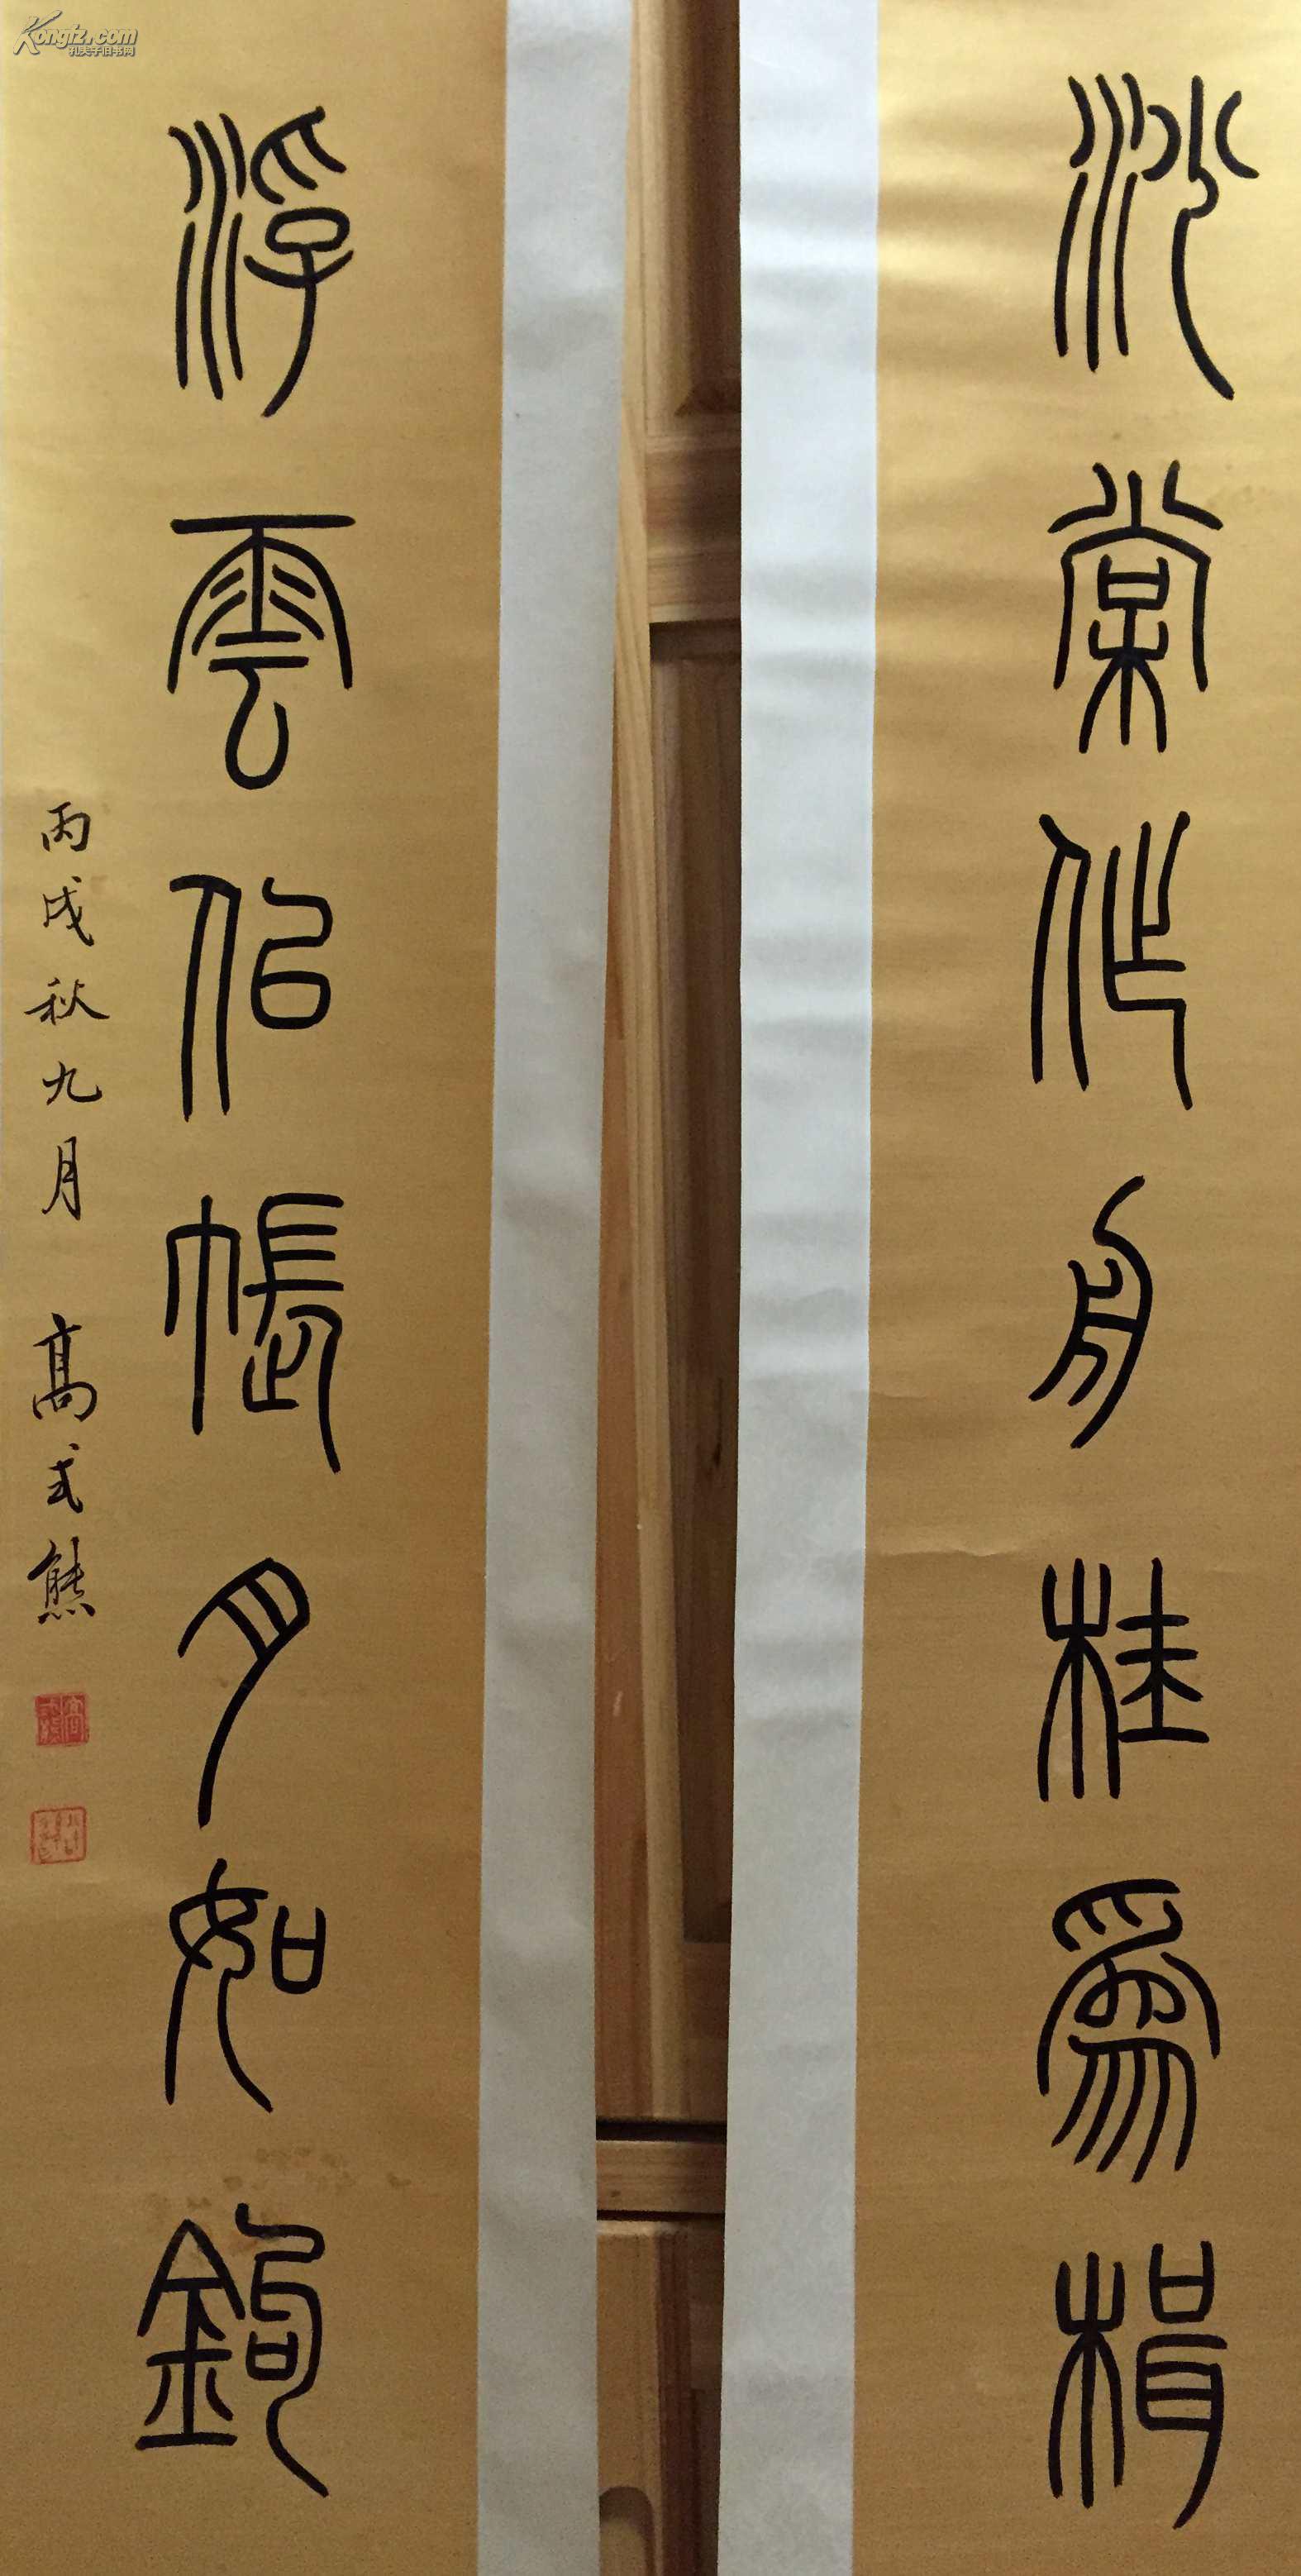 沙棠作舟桂為楫
浮雲似帳月如鉤
丙戌秋九月 高式熊
Kongfz.com
孔夫子旧书网